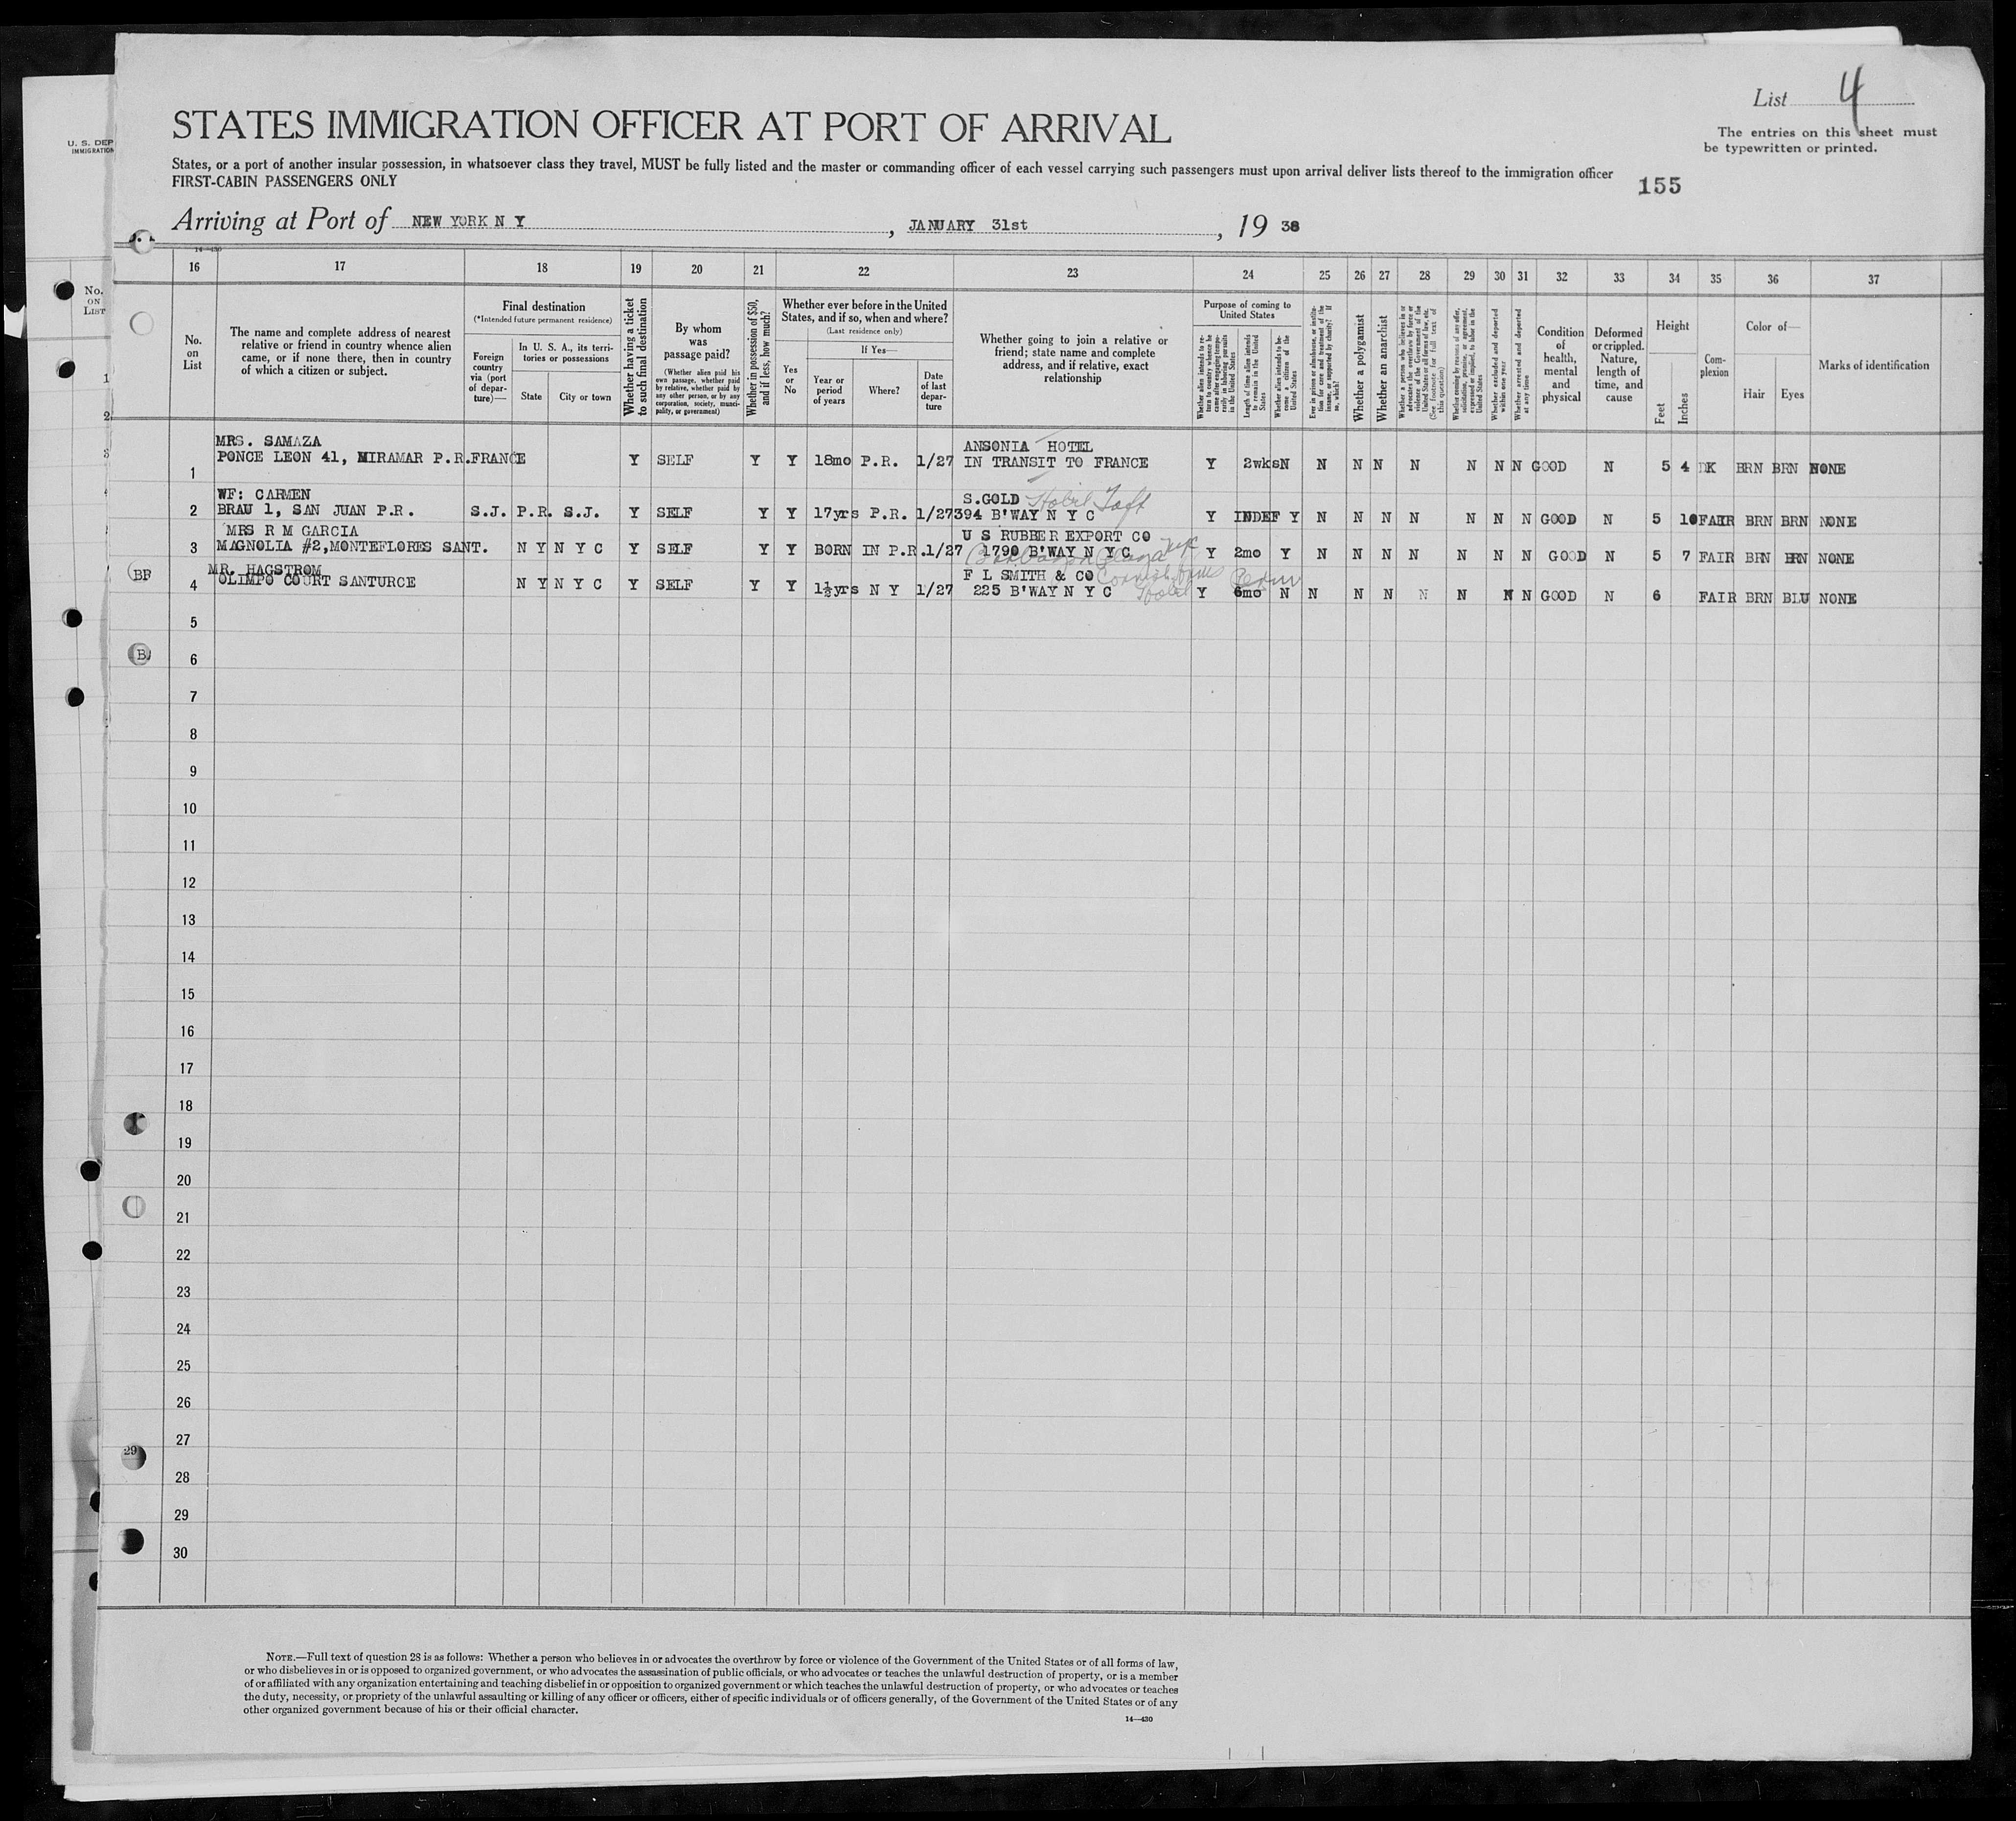 List 4
The entries on this sheet must
be typewritten or printed.
U. S. DEP
IMMIGRATION
STATES IMMIGRATION OFFICER AT PORT OF ARRIVAL
States, or a port of another insular possession, in whatsoever class they travel, MUST be fully listed and the master or commanding officer of each vessel carrying such passengers must upon arrival deliver lists thereof to the immigration officer
FIRST-CABIN PASSENGERS ONLY
155
Arriving at Port of NEW YORK N Y , JANUARY 31st , 19 38
14—430
16 17 18 19 20 21 22 23 24 25 26 27 28 29 30 31 32 33 34 35 36 37
No. on List
No. on List
The name and complete address of nearest relative or friend in country whence alien came, or if none there, then in country of which a citizen or subject.
Final destination
(*Intended future permanent residence)
Foreign country via (port of departure)—
In U. S. A., its territories or possessions
State
City or town
Whether having a ticket to such final destination
By whom was passage paid?
(Whether alien paid his own passage, whether paid by relative, whether paid by any other person, or by any corporation, society, municipality, or government)
Whether in possession of $50, and if less, how much?
Whether ever before in the United States, and if so, when and where?
(Last residence only)
Yes or No
If Yes—
Year or period of years
Where?
Date of last departure
Whether going to join a relative or friend; state name and complete address, and if relative, exact relationship
Purpose of coming to United States
Whether alien intends to return to country whence he came after engaging temporarily in laboring pursuits in the United States
Length of time alien intends to remain in the United States
Whether alien intends to become a citizen of the United States
Ever in prison or almshouse, or institution for care and treatment of the insane, or supported by charity? If so, which?
Whether a polygamist
Whether an anarchist
Whether a person who believes in or advocates the overthrow by force or violence of the Government of the United States or all forms of law, etc. (See footnote for full text of this question)
Whether coming by reasons of any offer, solicitation, promise, or agreement, expressed or implied, to labor in the United States
Whether excluded and deported within one year
Whether arrested and deported at any time
Condition of health, mental and physical
Deformed or crippled. Nature, length of time, and cause
Height
Feet
Inches
Complexion
Color of—
Hair
Eyes
Marks of identification
MRS. SAMAZA ANSONIA HOTEL
1 PONCE LEON 41, MIRAMAR P.R. FRANCE Y SELF Y Y 18mo P.R. 1/27 IN TRANSIT TO FRANCE Y 2wks N N N N N N N N GOOD N 5 4 DK BRN BRN NONE
WF: CARMEN S.GOLD Hotel Taft
2 BRAU 1, SAN JUAN P.R. S.J. P.R. S.J. Y SELF Y Y 17yrs P.R. 1/27 394 B'WAY N Y C Y INDEF Y N N N N N N N GOOD N 5 10 FAIR BRN BRN NONE
MRS R M GARCIA U S RUBBER EXPORT CO
3 MAGNOLIA #2, MONTEFLORES SANT. N Y N Y C Y SELF Y Y BORN IN P.R. 1/27 1790 B'WAY N Y C Y 2mo Y N N N N N N N GOOD N 5 7 FAIR BRN BRN NONE
Barbazon Plaza NYC
BF
MR. HAGSTROM F L SMITH & CO
4 OLIMPO COURT SANTURCE N Y N Y C Y SELF Y Y 1½yrs N Y 1/27 225 B'WAY N Y C Hotel Y 6mo N N N N N N N N GOOD N 6 FAIR BRN BLU NONE
5
B
6
7
8
9
10
11
12
13
14
15
16
17
18
19
20
21
22
23
24
25
26
27
29
28
29
30
NOTE.—Full text of question 28 is as follows: Whether a person who believes in or advocates the overthrow by force or violence of the Government of the United States or of all forms of law,
or who disbelieves in or is opposed to organized government, or who advocates the assassination of public officials, or who advocates or teaches the unlawful destruction of property, or is a member
of or affiliated with any organization entertaining and teaching disbelief in or opposition to organized government or which teaches the unlawful destruction of property, or who advocates or teaches
the duty, necessity, or propriety of the unlawful assaulting or killing of any officer or officers, either of specific individuals or of officers generally, of the Government of the United States or of any
other organized government because of his or their official character.
14—430